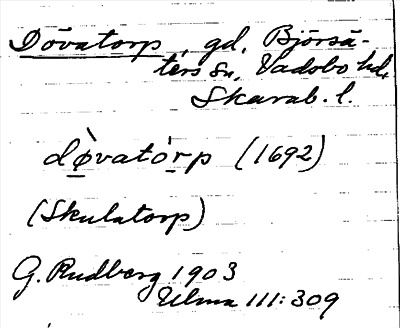 Dövatorp, gd, Björsä-
ters sn, Vadsbo hd,
Skarab. l.
dø̀vatórp (1692)
(Skulatorp)
G. Rudberg 1903
Ulma 111:309